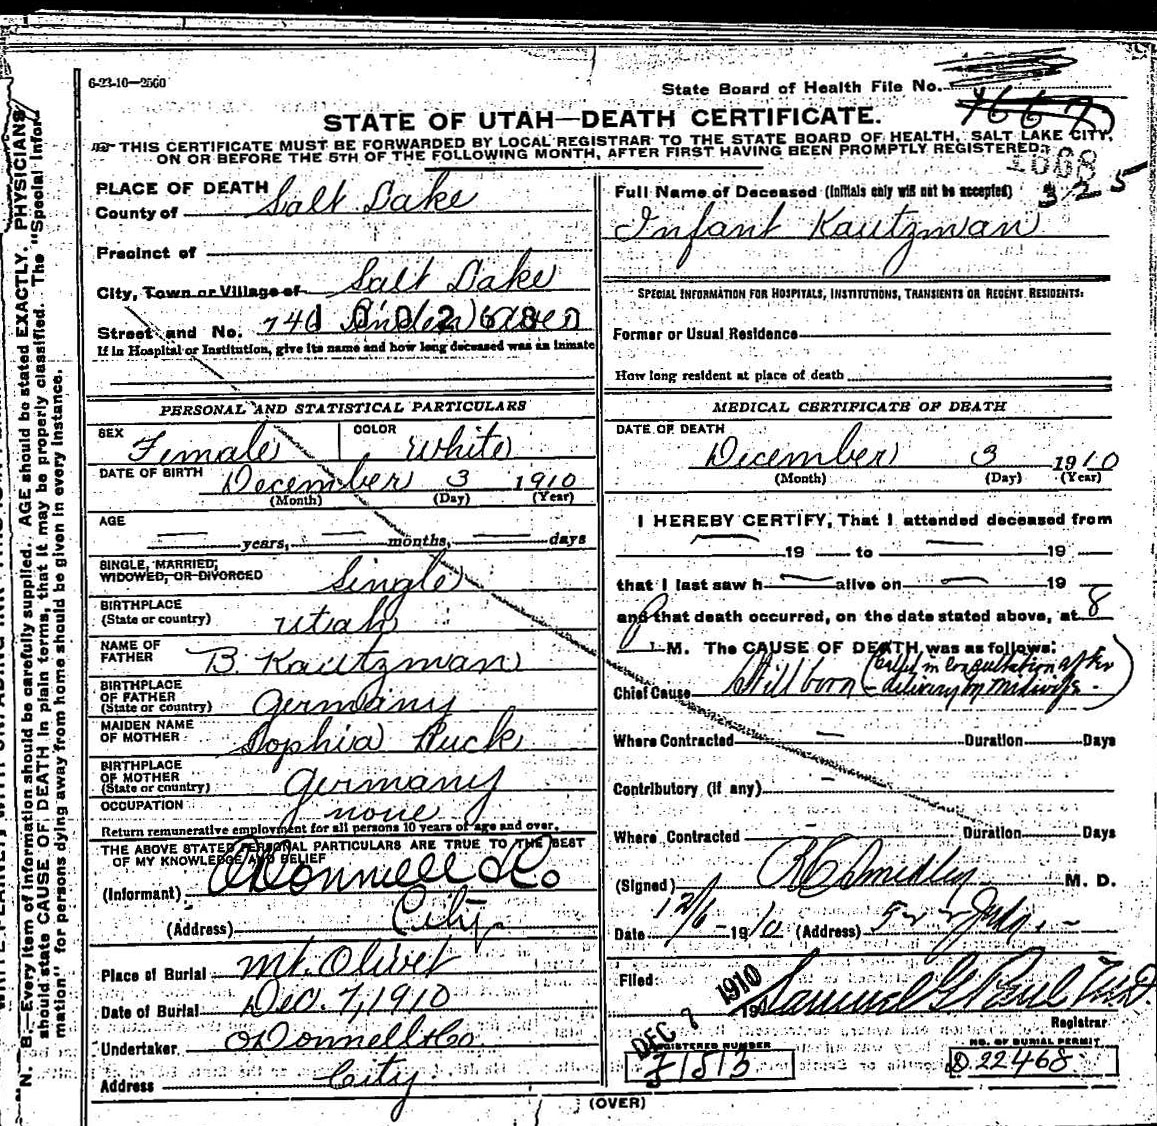 6-23-10—2560
State Board of Health File No.
1667
STATE OF UTAH—DEATH CERTIFICATE.
THIS CERTIFICATE MUST BE FORWARDED BY LOCAL REGISTRAR TO THE STATE BOARD OF HEALTH, SALT LAKE CITY,
ON OR BEFORE THE 5TH OF THE FOLLOWING MONTH, AFTER FIRST HAVING BEEN PROMPTLY REGISTERED.
1668
325
PLACE OF DEATH
County of Salt Lake
Precinct of
City, Town or Village of Salt Lake
Street and No. 740 Linden Aven
1002680
If in Hospital or Institution, give its name and how long deceased was an inmate
PERSONAL AND STATISTICAL PARTICULARS
SEX Female COLOR White
DATE OF BIRTH December 3 1910
(Month) (Day) (Year)
AGE
— years, — months, — days
SINGLE, MARRIED,
WIDOWED, OR DIVORCED Single
BIRTHPLACE
(State or country) Utah
NAME OF
FATHER B. Kautzman
BIRTHPLACE
OF FATHER
(State or country) Germany
MAIDEN NAME
OF MOTHER Sophia Ruck
BIRTHPLACE
OF MOTHER
(State or country) Germany
OCCUPATION none
Return remunerative employment for all persons 10 years of age and over.
THE ABOVE STATED PERSONAL PARTICULARS ARE TRUE TO THE BEST
OF MY KNOWLEDGE AND BELIEF
(Informant) ODonnell & Co
(Address) City
Place of Burial Mt. Olivet
Date of Burial Dec. 7, 1910
Undertaker ODonnell & Co.
Address City.
Full Name of Deceased (Initials only will not be accepted)
Infant Kautzman
SPECIAL INFORMATION FOR HOSPITALS, INSTITUTIONS, TRANSIENTS OR RECENT RESIDENTS:
Former or Usual Residence
How long resident at place of death
MEDICAL CERTIFICATE OF DEATH
DATE OF DEATH
December 3 1910
(Month) (Day) (Year)
I HEREBY CERTIFY, That I attended deceased from
— 19 — to — 19 —
that I last saw h — alive on — 19 —
and that death occurred, on the date stated above, at 8
P. M. The CAUSE OF DEATH was as follows:
Chief Cause Stillborn (Called in Consultation after
delivery by midwife.)
Where Contracted — Duration — Days
Contributory (if any) -
Where Contracted — Duration — Days
(Signed) M. D.
Date 12/6 - 1910 (Address)
Filed DEC 7 1910 19 Samuel G Paul M.D.
Registrar
REGISTERED NUMBER
NO. OF BURIAL PERMIT
1513
D 22468
(OVER)
N. B.—Every item of information should be carefully supplied. AGE should be stated EXACTLY. PHYSICIANS
should state CAUSE OF DEATH in plain terms, that it may be properly classified. The "Special Infor-
mation" for persons dying away from home should be given in every instance.